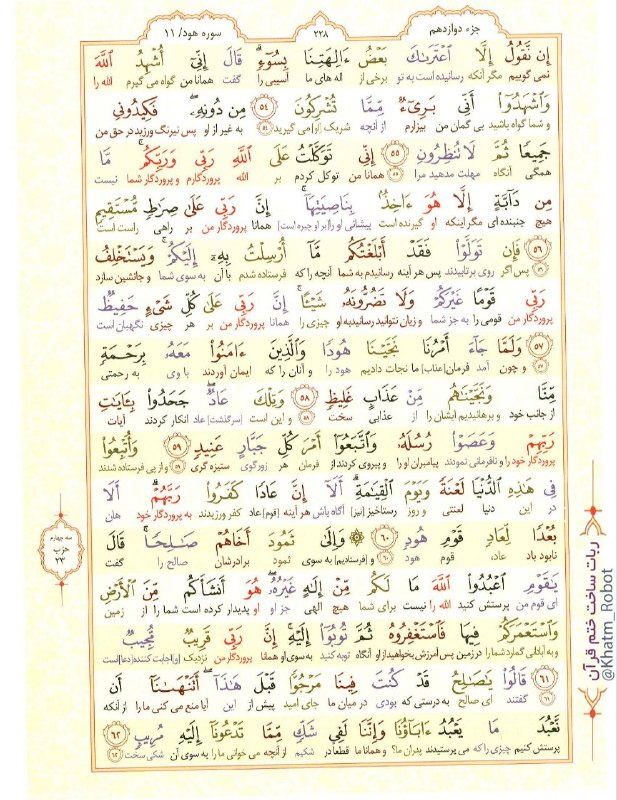 سوره هود/ ۱۱
۲۲۸
جزء دوازدهم
إِن نَّقُولُ إِلَّا ٱعْتَرَىٰكَ بَعْضُ ءَالِهَتِنَا بِسُوٓءٍ ۗ قَالَ إِنِّىٓ أُشْهِدُ ٱللَّهَ
نمی گوییم مگر آنکه رسانیده است به تو برخی از اله های ما آسیبی را گفت همانا من گواه می گیرم الله را
وَٱشْهَدُوٓا۟ أَنِّى بَرِىٓءٌ مِّمَّا تُشْرِكُونَ ﴿٥٤﴾ مِن دُونِهِۦ ۖ فَكِيدُونِى
و شما گواه باشید بی گمان من بیزارم از آنچه شریک [او] می گیرید ۵۴ به غیر از او پس نیرنگ ورزید در حق من
جَمِيعًا ثُمَّ لَا تُنظِرُونِ ﴿٥٥﴾ إِنِّى تَوَكَّلْتُ عَلَى ٱللَّهِ رَبِّى وَرَبِّكُم ۚ مَّا
همگی آنگاه مهلت مدهید مرا ۵۵ همانا من توکل کردم بر الله پروردگارم و پروردگار شما نیست
مِن دَآبَّةٍ إِلَّا هُوَ ءَاخِذٌۢ بِنَاصِيَتِهَآ ۚ إِنَّ رَبِّى عَلَىٰ صِرَٰطٍ مُّسْتَقِيمٍ
هیچ جنبنده ای مگر اینکه او گیرنده است پیشانی او را [بر او چیره است] همانا پروردگار من بر راهی راست است
﴿٥٦﴾ فَإِن تَوَلَّوْا۟ فَقَدْ أَبْلَغْتُكُم مَّآ أُرْسِلْتُ بِهِۦٓ إِلَيْكُمْ ۚ وَيَسْتَخْلِفُ
۵۶ پس اگر روی برتابیدند پس هر آینه رسانیدم به شما آنچه را که فرستاده شدم با آن به سوی شما و جانشین سازد
رَبِّى قَوْمًا غَيْرَكُمْ وَلَا تَضُرُّونَهُۥ شَيْـًٔا ۚ إِنَّ رَبِّى عَلَىٰ كُلِّ شَىْءٍ حَفِيظٌ
پروردگار من قومی را به جز شما و زیان نتوانید رسانید به او چیزی را همانا پروردگار من بر هر چیزی نگهبان است
﴿٥٧﴾ وَلَمَّا جَآءَ أَمْرُنَا نَجَّيْنَا هُودًا وَٱلَّذِينَ ءَامَنُوا۟ مَعَهُۥ بِرَحْمَةٍ
۵۷ و چون آمد فرمان [عذاب] ما نجات دادیم هود را و آنان را که ایمان آوردند با وی به رحمتی
مِّنَّا وَنَجَّيْنَٰهُم مِّنْ عَذَابٍ غَلِيظٍ ﴿٥٨﴾ وَتِلْكَ عَادٌ ۖ جَحَدُوا۟ بِـَٔايَٰتِ
از جانب خود و برهانیدیم ایشان را از عذابی سخت ۵۸ و این است [سرگذشت] عاد انکار کردند آیات
رَبِّهِمْ وَعَصَوْا۟ رُسُلَهُۥ وَٱتَّبَعُوٓا۟ أَمْرَ كُلِّ جَبَّارٍ عَنِيدٍ ﴿٥٩﴾ وَأُتْبِعُوا۟
پروردگار خود را و نافرمانی نمودند پیامبران او را و پیروی کردند از فرمان هر زورگوی ستیزه گری ۵۹ و از پی فرستاده شدند
فِى هَٰذِهِ ٱلدُّنْيَا لَعْنَةً وَيَوْمَ ٱلْقِيَٰمَةِ ۗ أَلَآ إِنَّ عَادًا كَفَرُوا۟ رَبَّهُمْ ۗ أَلَا
در این دنیا لعنتی و روز رستاخیز [نیز] آگاه باش هر آینه [قوم] عاد کفر ورزیدند به پروردگار خود هان
بُعْدًا لِّعَادٍ قَوْمِ هُودٍ ﴿٦٠﴾ وَإِلَىٰ ثَمُودَ أَخَاهُمْ صَٰلِحًا ۚ قَالَ
نابود باد عاد، قوم هود ۶۰ و [فرستادیم] به سوی ثمود برادرشان صالح را گفت
يَٰقَوْمِ ٱعْبُدُوا۟ ٱللَّهَ مَا لَكُم مِّنْ إِلَٰهٍ غَيْرُهُۥ ۖ هُوَ أَنشَأَكُم مِّنَ ٱلْأَرْضِ
ای قوم من پرستش کنید الله را نیست برای شما هیچ الهی جز او او پدیدار کرده است شما را از زمین
وَٱسْتَعْمَرَكُمْ فِيهَا فَٱسْتَغْفِرُوهُ ثُمَّ تُوبُوٓا۟ إِلَيْهِ ۚ إِنَّ رَبِّى قَرِيبٌ مُّجِيبٌ
و به آبادانی گمارد شما را در زمین پس آمرزش بخواهید از او آنگاه توبه کنید به سوی او همانا پروردگار من نزدیک [و] اجابت کننده [دعا] است
﴿٦١﴾ قَالُوا۟ يَٰصَٰلِحُ قَدْ كُنتَ فِينَا مَرْجُوًّا قَبْلَ هَٰذَآ ۖ أَتَنْهَىٰنَآ أَن
۶۱ گفتند ای صالح به درستی که بودی در میان ما جای امید پیش از این آیا منع می کنی ما را از آنکه
نَّعْبُدَ مَا يَعْبُدُ ءَابَآؤُنَا وَإِنَّنَا لَفِى شَكٍّ مِّمَّا تَدْعُونَآ إِلَيْهِ مُرِيبٍ ﴿٦٢﴾
پرستش کنیم چیزی را که می پرستیدند پدران ما؟ و همانا ما قطعا در شکیم از آنچه می خوانی ما را به سوی آن شکی سخت ۶۲
سه چهارم
حزب
۲۳
ربات ساخت ختم قرآن
@Khatm_Robot